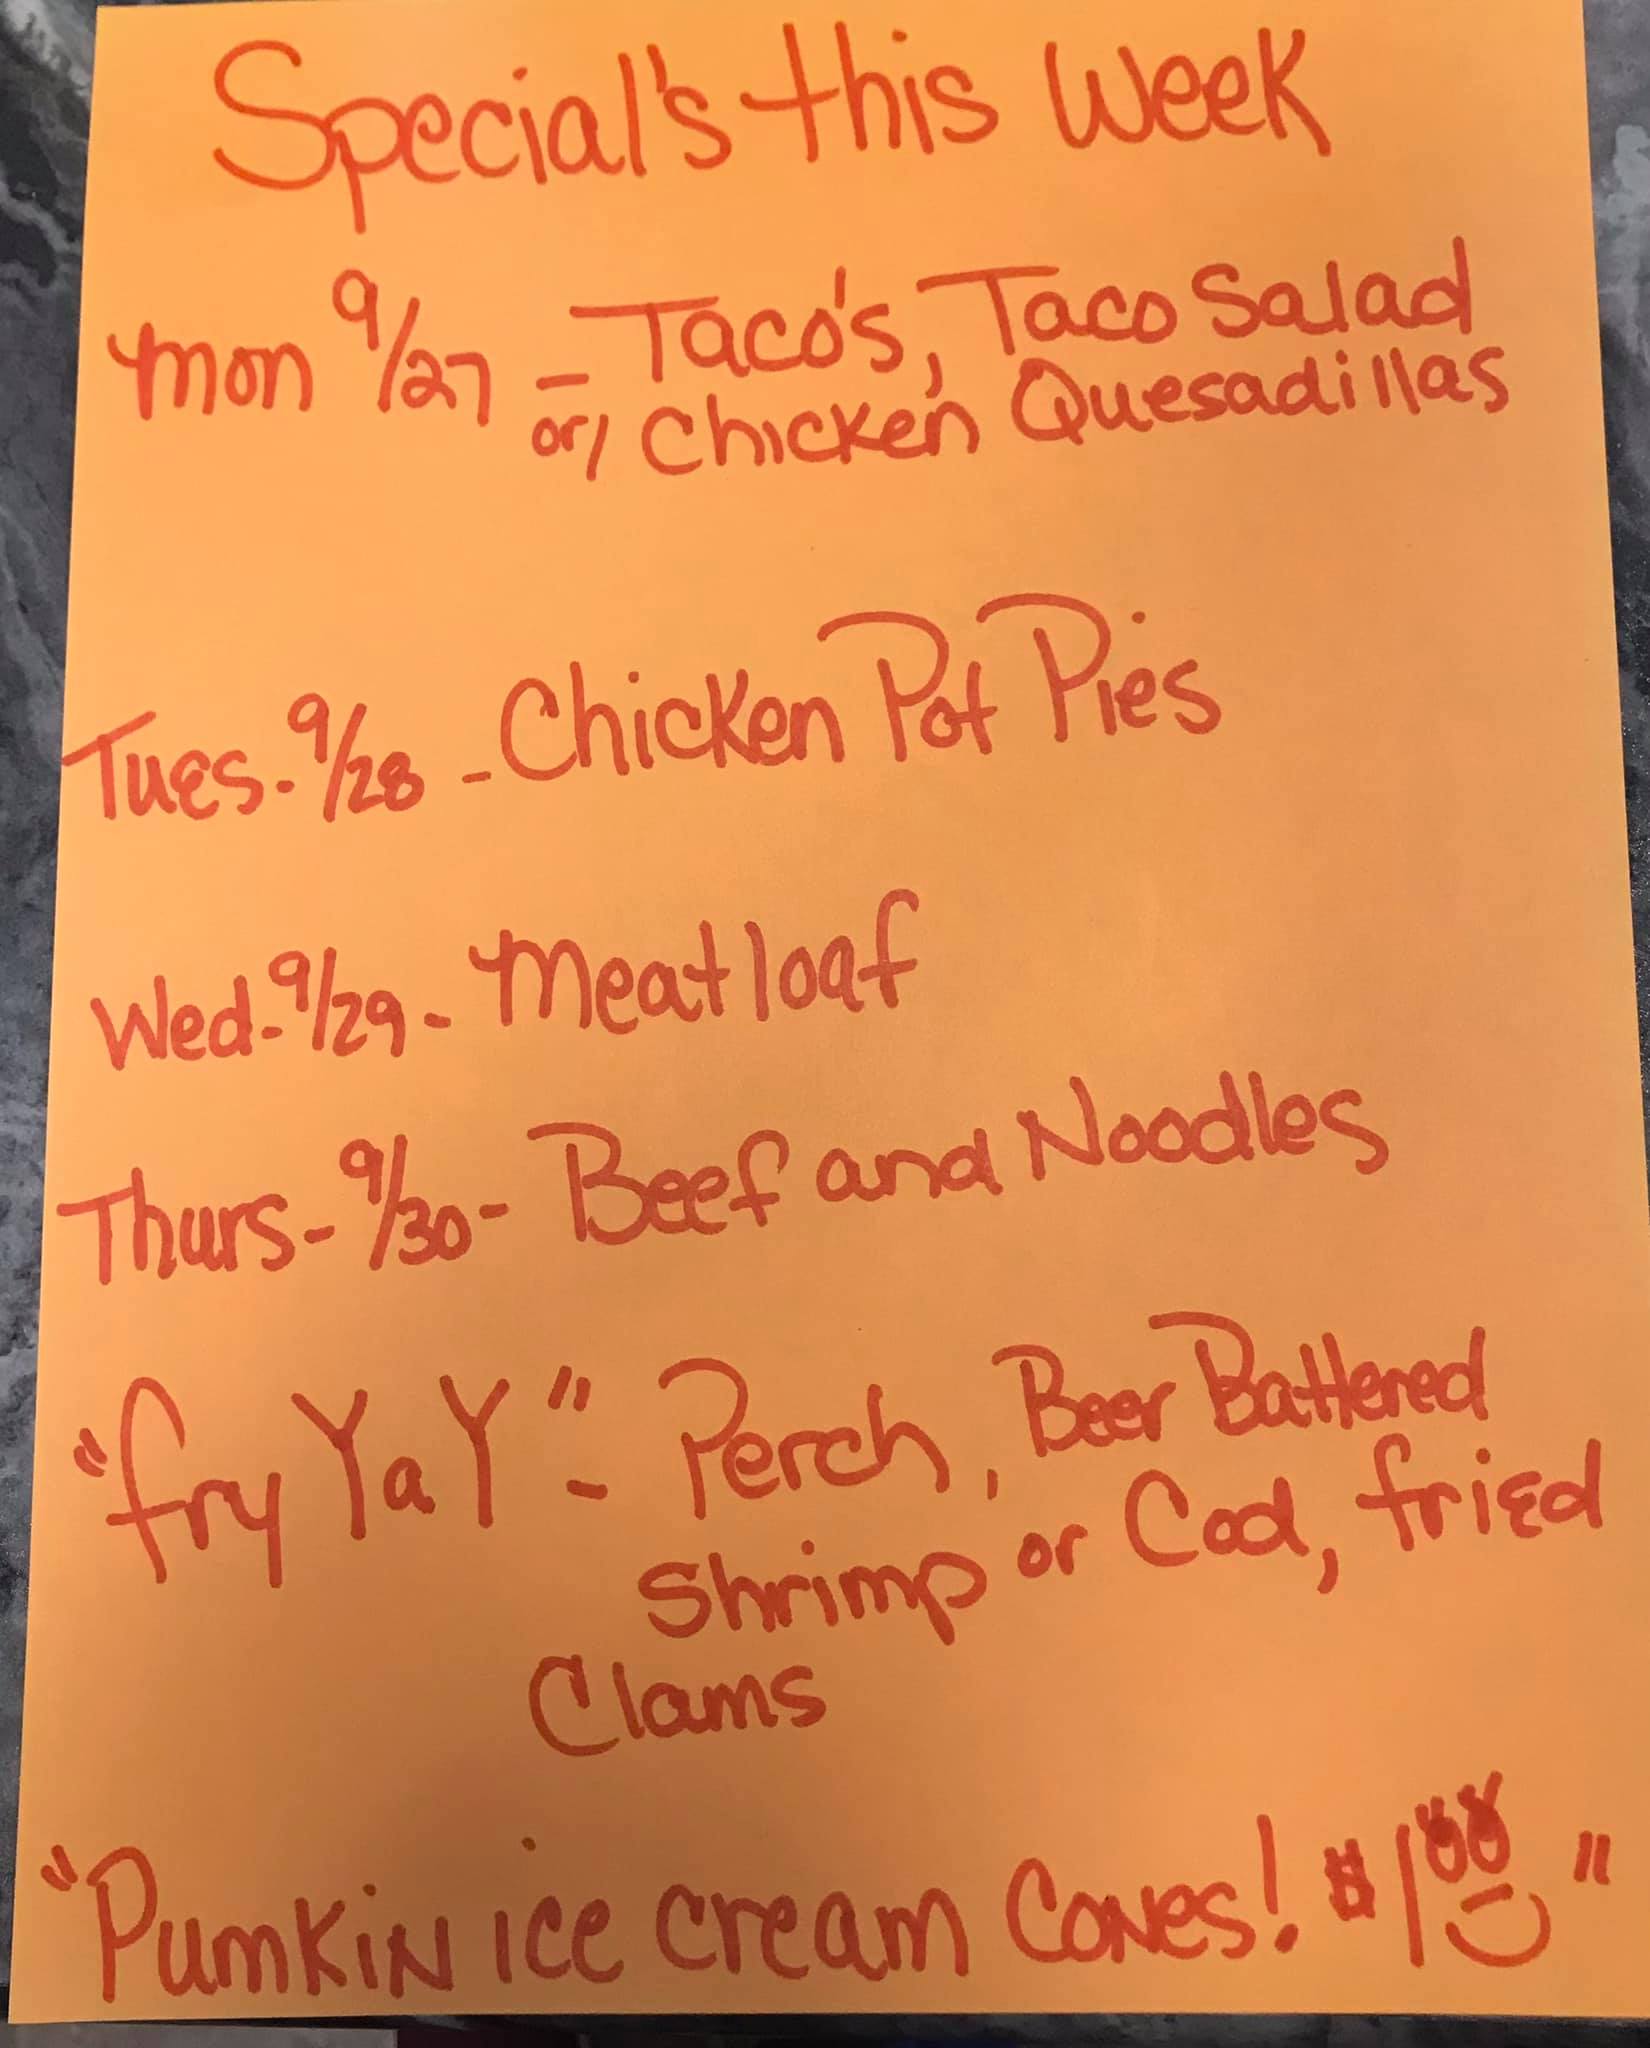 Special's this Week
Mon 9/27 - Taco's, Taco Salad
or/ Chicken Quesadillas
Tues. 9/28 - Chicken Pot Pies
Wed. 9/29 - Meatloaf
Thurs - 9/30 - Beef and Noodles
"fry YaY" - Perch, Beer Battered
Shrimp or Cod, fried
Clams
"Pumkin ice cream Cones! $1⁰⁰"